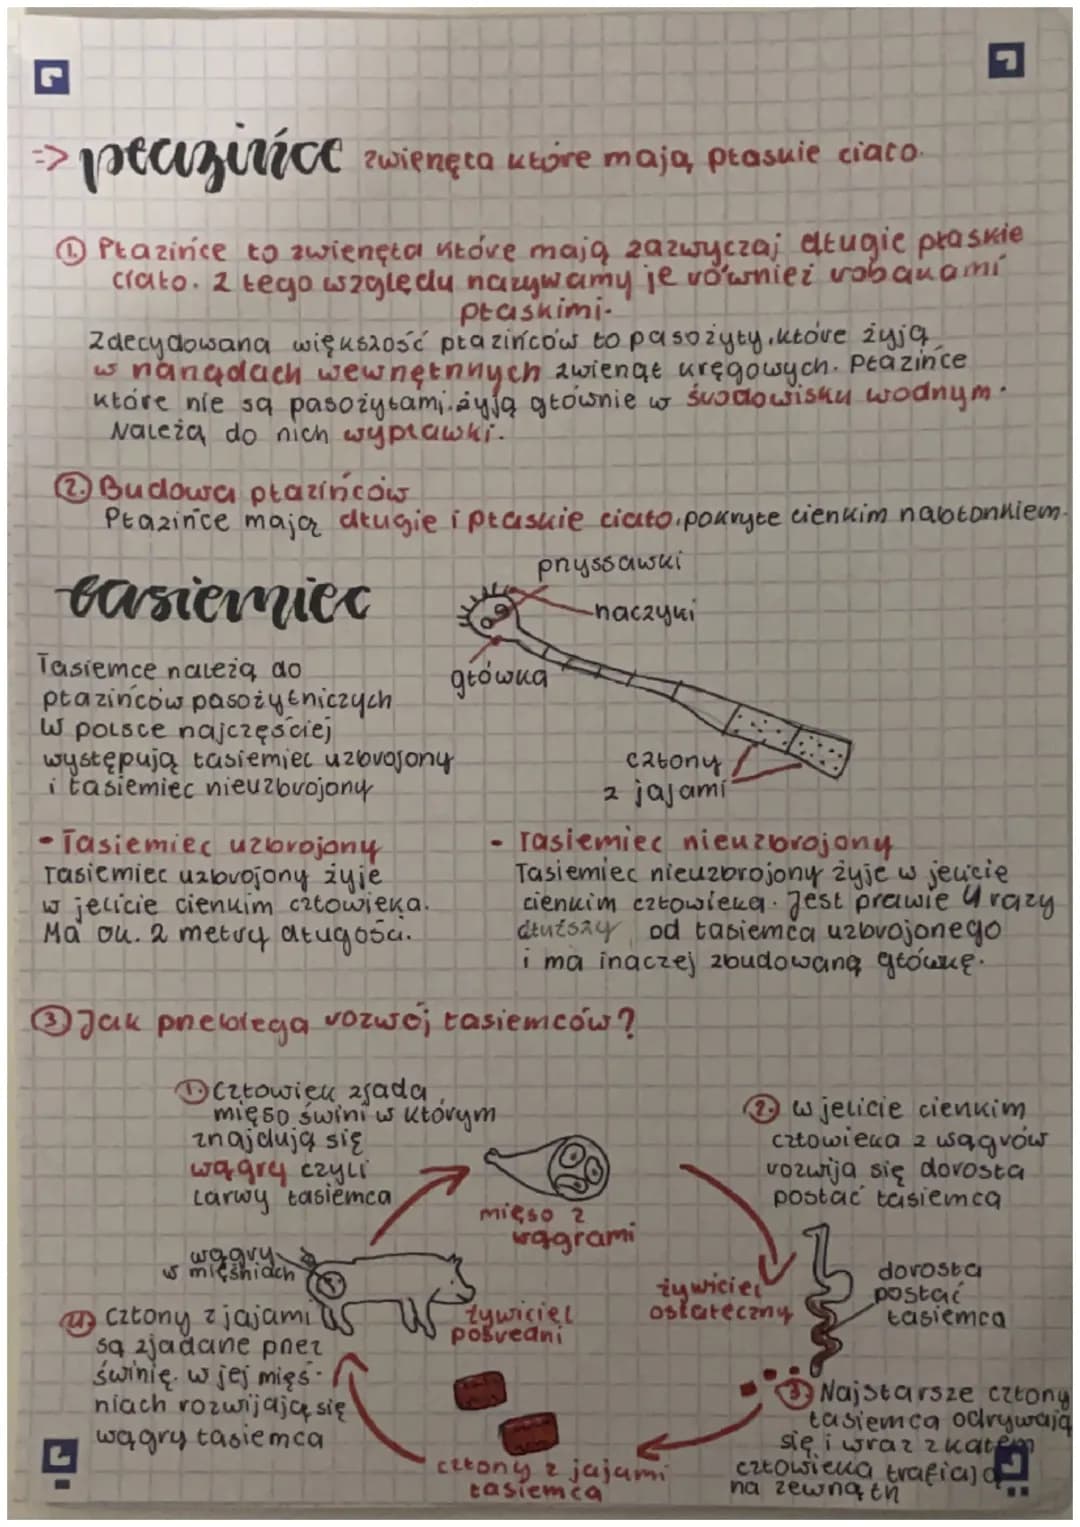 => płazińce zwierzęta które mają płaskie ciało.
1. Płazińce to zwierzęta które mają zazwyczaj długie płaskie
ciało. Z tego względu nazywamy je również robakami
płaskimi.
Zdecydowana większość płazińców to pasożyty, które żyją
w narządach wewnętrznych zwierząt kręgowych. Płazińce
które nie są pasożytami, żyją głównie w środowisku wodnym.
Należą do nich wypławki.
2. Budowa płazińców
Płazińce mają długie i płaskie ciało, pokryte cienkim nabłonkiem.
tasiemiec
pryssawki
haczyki
główka
człony
z jajami
Tasiemce należą do
płazińców pasożytniczych
W polsce najczęściej
występują tasiemiec uzbrojony
i tasiemiec nieuzbrojony
- Tasiemiec uzbrojony
Tasiemiec uzbrojony żyje
w jelicie cienkim człowieka.
Ma ok. 2 metry długości.
- Tasiemiec nieuzbrojony
Tasiemiec nieuzbrojony żyje w jelicie
cienkim człowieka. Jest prawie 4 razy
dłuższy od tasiemca uzbrojonego
i ma inaczej zbudowaną główkę.
3. Jak przebiega rozwój tasiemców?
1. Człowiek zjada
mięso świni w którym
znajdują się
wągry czyli
Larwy tasiemca
mięso z
wągrami
2. w jelicie cienkim
człowieka z wągrów
rozwija się dorosła
postać tasiemca
wągry
w mięśniach
żywiciel
pośredni
żywiciel
ostateczny
dorosła
postać
tasiemca
4. człony z jajami
są zjadane przez
świnię. w jej mięś-
niach rozwijają się
wągry tasiemca
człony z jajami
tasiemca
3. Najstarsze człony
tasiemca odrywają
się i wraz z kałem
człowieka trafiają
na zewnątrz